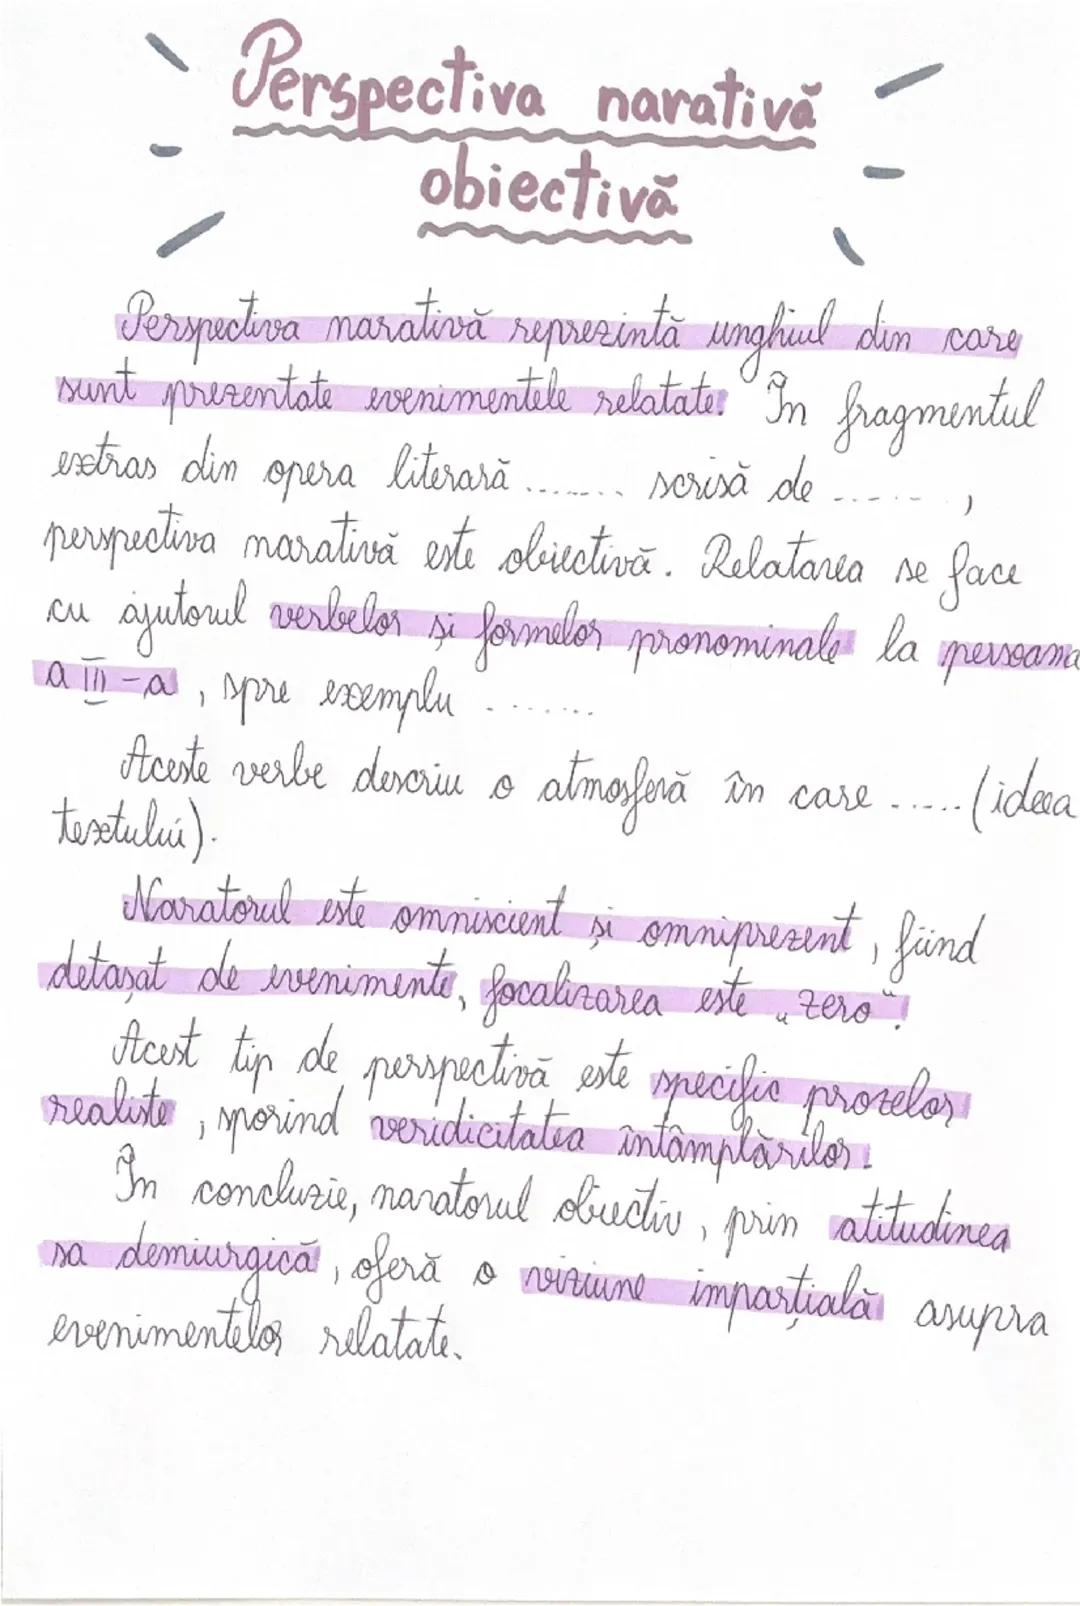 Perspectiva narativă
obiectivă
Perspectiva narativă reprezintă unghiul din care
sunt prezentate evenimentele relatate. În fragmentul
extras din opera literară ........ scrisă de .......,
perspectiva narativă este obiectivă. Relatarea se face
cu ajutorul verbelor și formelor pronominale la persoana
a III-a, spre exemplu .......
Aceste verbe descriu o atmosferă în care ...... (ideea
textului).
Naratorul este omniscient și omniprezent, fiind
detașat de evenimente, focalizarea este „zero“.
Acest tip de perspectivă este specific prozelor
realiste, sporind veridicitatea întâmplărilor.
În concluzie, naratorul obiectiv, prin atitudinea
sa demiurgică, oferă o viziune imparțială asupra
evenimentelor relatate.